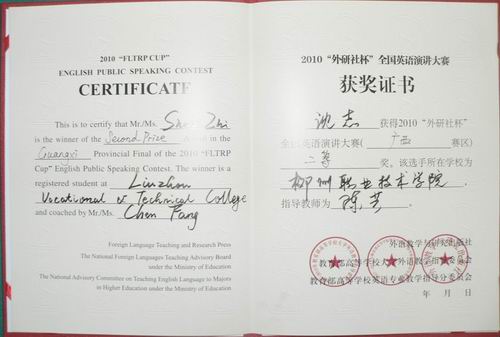 2010 "FLTRP CUP"
ENGLISH PUBLIC SPEAKING CONTEST
CERTIFICATE
This is to certify that Mr./Ms. Shen Zhi
is the winner of the Second Prize Award in the
Guangxi Provincial Final of the 2010 "FLTRP
Cup" English Public Speaking Contest. The winner is a
registered student at Liuzhou
Vocational & Technical College
and coached by Mr./Ms. Chen Fang
Foreign Language Teaching and Research Press
The National Foreign Languages Teaching Advisory Board
under the Ministry of Education
The National Advisory Committee on Teaching English Language to Majors
in Higher Education under the Ministry of Education
2010“外研社杯”全国英语演讲大赛
获奖证书
沈志 获得2010“外研社杯”
全国英语演讲大赛(广西 赛区)
二等 奖。该选手所在学校为
柳州职业技术学院,
指导教师为 陈芳.
外语教学与研究出版社
教育部高等学校大学外语教学指导委员会
教育部高等学校外语专业教学指导分委员会
年 月 日